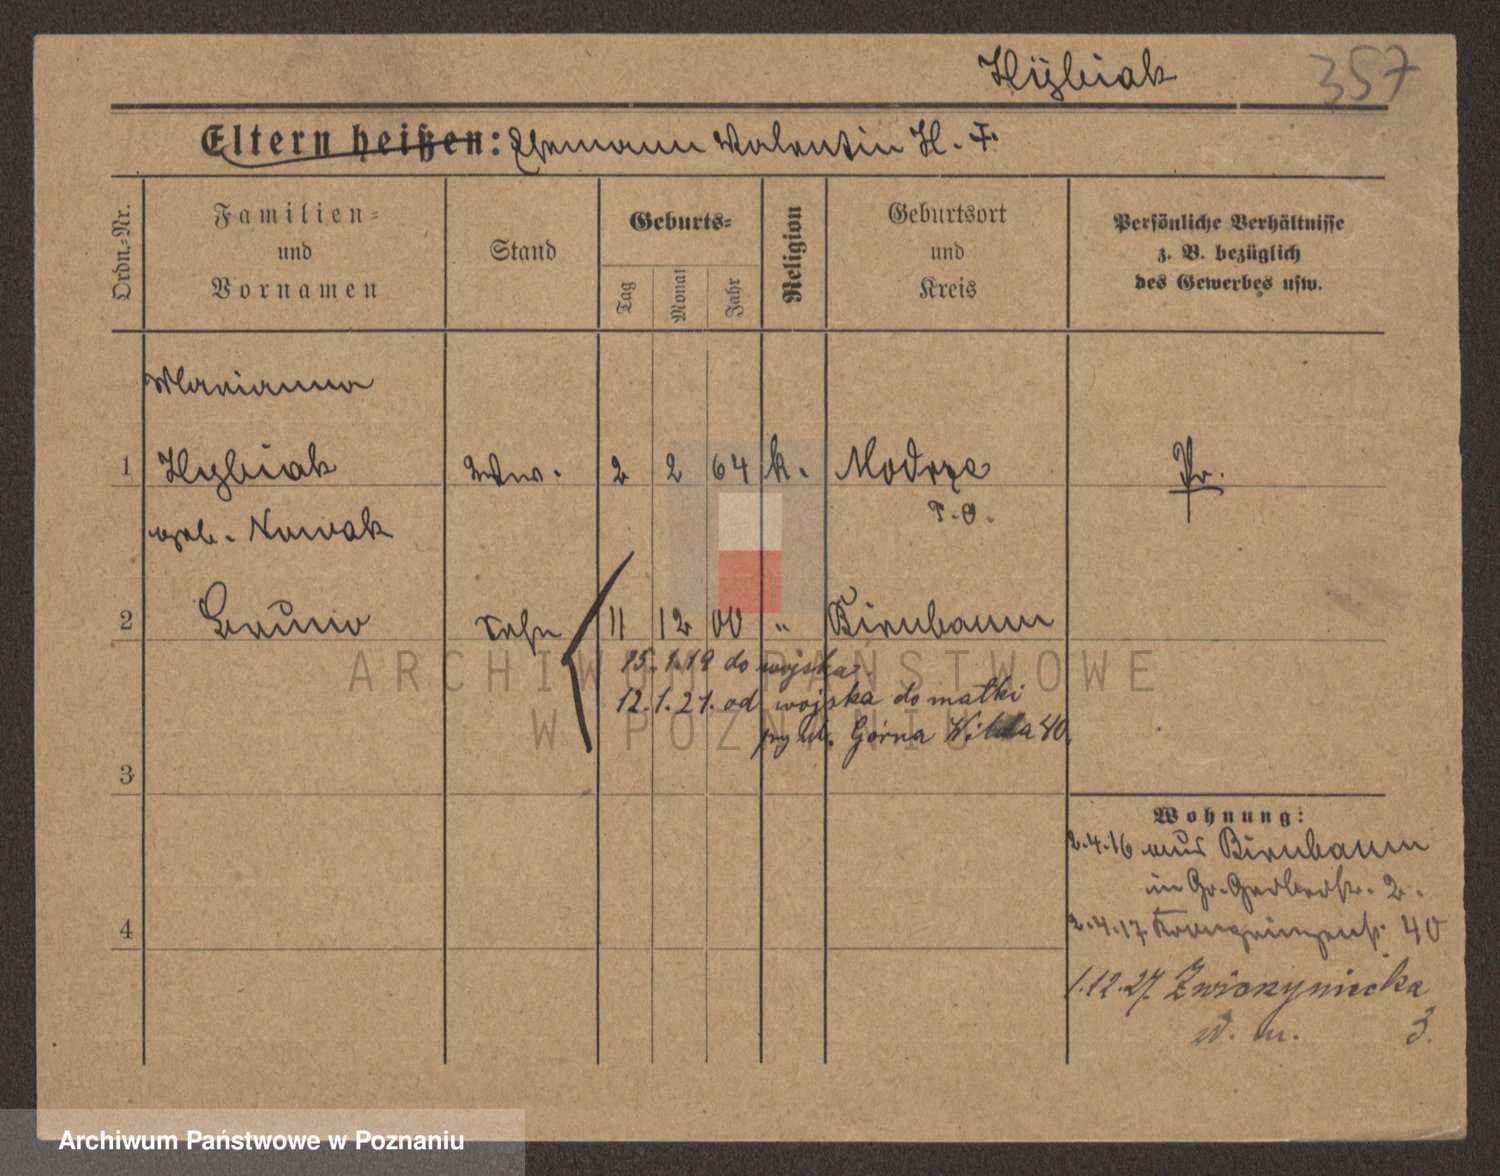 Hÿbiak 357
Eltern heißen: Ehemann Valentin H. †.
Ordn.-Nr.
Familien-
und
Vornamen
Stand
Geburts-
Tag
Monat
Jahr
Religion
Geburtsort
und
Kreis
Persönliche Verhältnisse
z. B. bezüglich
des Gewerbes usw.
Marianna
1 Hybiak Ww. 2 2 64 k. Modrze Pr.
geb. Nowak P. O.
2 Bruno Sohn 11 12 00 " Birnbaum
15.1.19 do wojska
12.1.21. od wojska do matki
przy ul. Górna Wilda 40.
3
Wohnung:
2.4.16 aus Birnbaum
in Gr. Gerberstr. 2.
2.4.17 Kronprinzenstr. 40
4
1.12.27. Zwierzyniecka
3.
ARCHIWUM PAŃSTWOWE
W POZNANIU
Archiwum Państwowe w Poznaniu